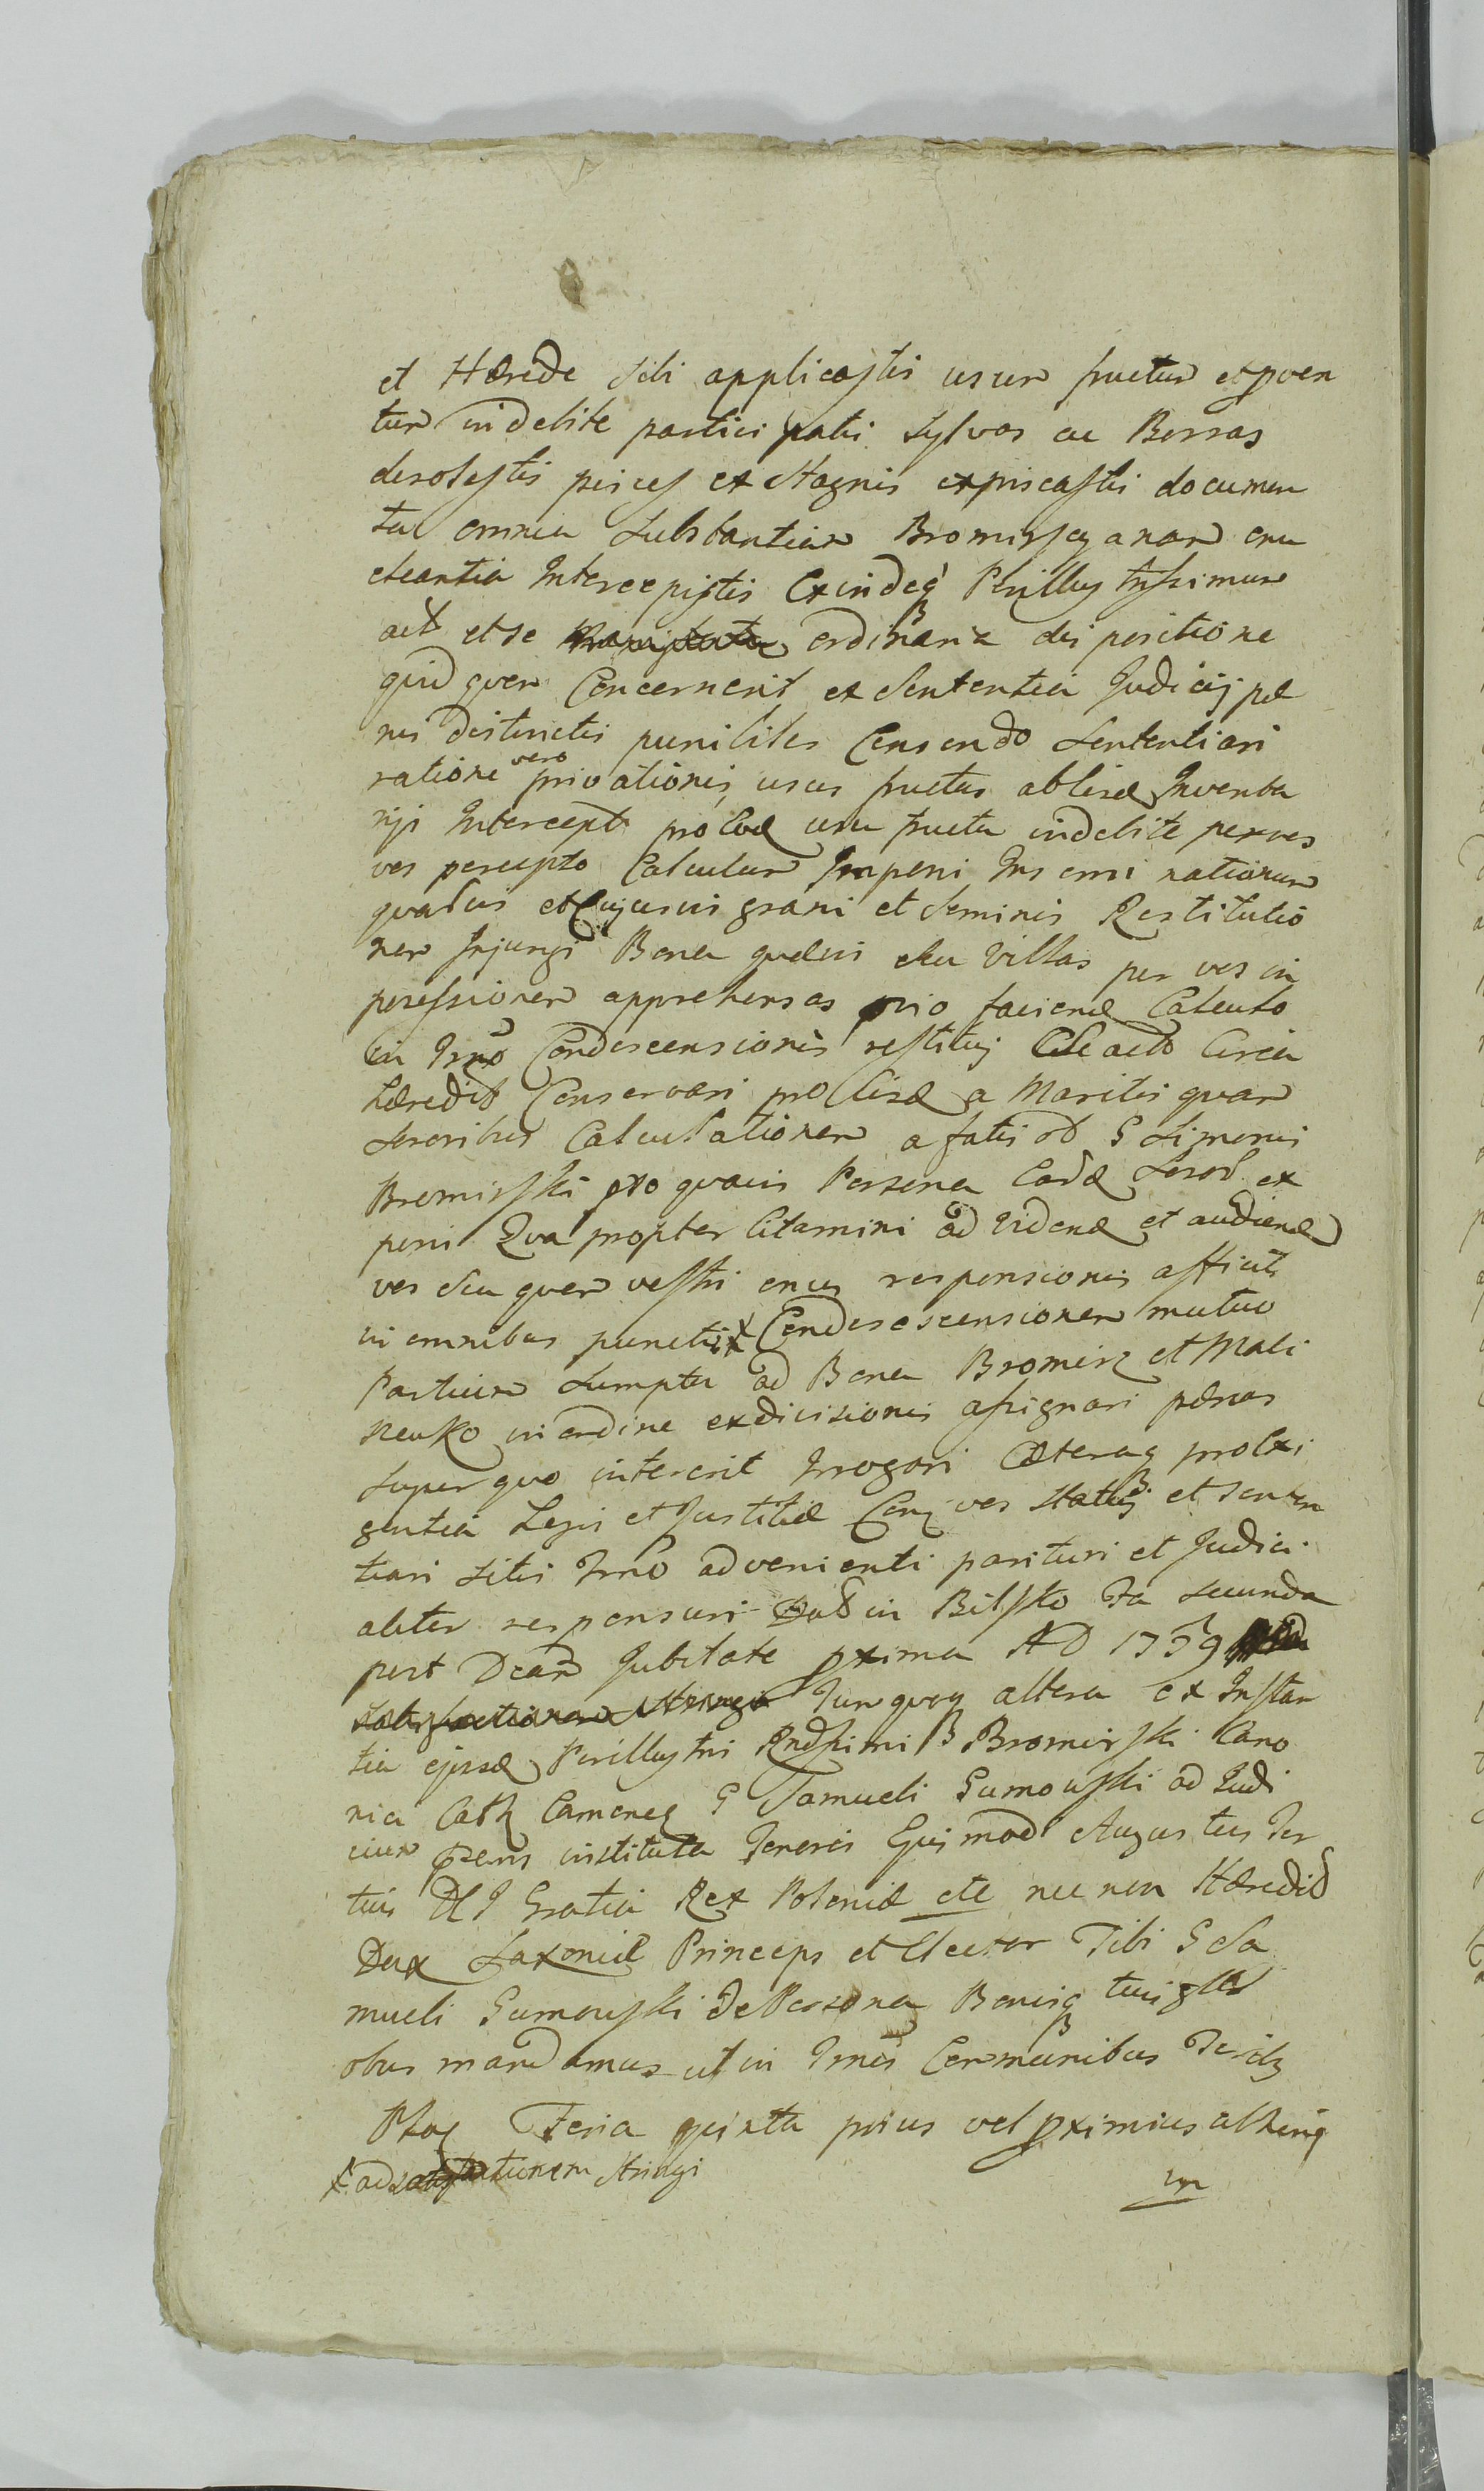 et Hærede sibi applicastis usum fructum et proven
tum indebite participatis Sylvas ac Borras
desolastis pisces ex stagnis expiscastis documen
ta omnia substantiam Bromirscyanam enu
cleantia Intercepistis Exindeq Perillustrissimum
act et se ordinaria dispositione
quidquem Concernent ex Sententia Judicij pæ
nis districtis punibiles Censendo Sententiari
ratione vero privationis usus fructus ablisæ Inventa
rijs Intercept pro Eod usu fructu indebite per vos
vos percepto Calculum Imponi Ins omni rationum
qualus et Cujusvis grani et Seminis Restitutio
nem Injungi Bona quævis seu Villas per vos in
possessionem apprehensas prio faciend Calculo
in Trno Condescensionis restitui acto Circa
hæredit Conservari pro a Maritis quam
Sororibus Calculationem a fatis od G Simonis
Bromirski pro quavis Persona Ead Soror ex
poni Qua propter Citamini ad vidend et audiend
vos seu quem vestri onus responsionis afficit
in omnibus punctis x Condescensionem mutuo
Partium Sumptu ad Bona Bromirz et Mali
nenko in ordine exdivisionis assignari pænas
super quo intererit Irrogari Cæteraq pro Exi
gentia Legis et Justitiæ Conz vos Statuj et senten
tiari sitis Trno advenienti parituri et Judici
aliter responsuri Dat in Bilsko Fa secunda
post Dcam Jubilate pxima AD 1739
Satisfactionem Stringi Tum quoq altera ex Instan
tia ejusd Perillustri Rndssimi Bromirski Cano
nici Cath Camenec G Samueli Gumowski ad Judi
cium pzens instituta Tenoris Ejusmodi Augustus Ter
tius D G Gratia Rex Poloniæ etc nec non Hæredit
Dux Saxoniæ Princeps et Elector Tibi G Sa
mueli Gumowski De Persona Bonisq tuis glib
obus mandamus ut in Trnis Communibus Terlb
Ploc Feria quinta prius vel pximius abhinc
x ad Stringi
in